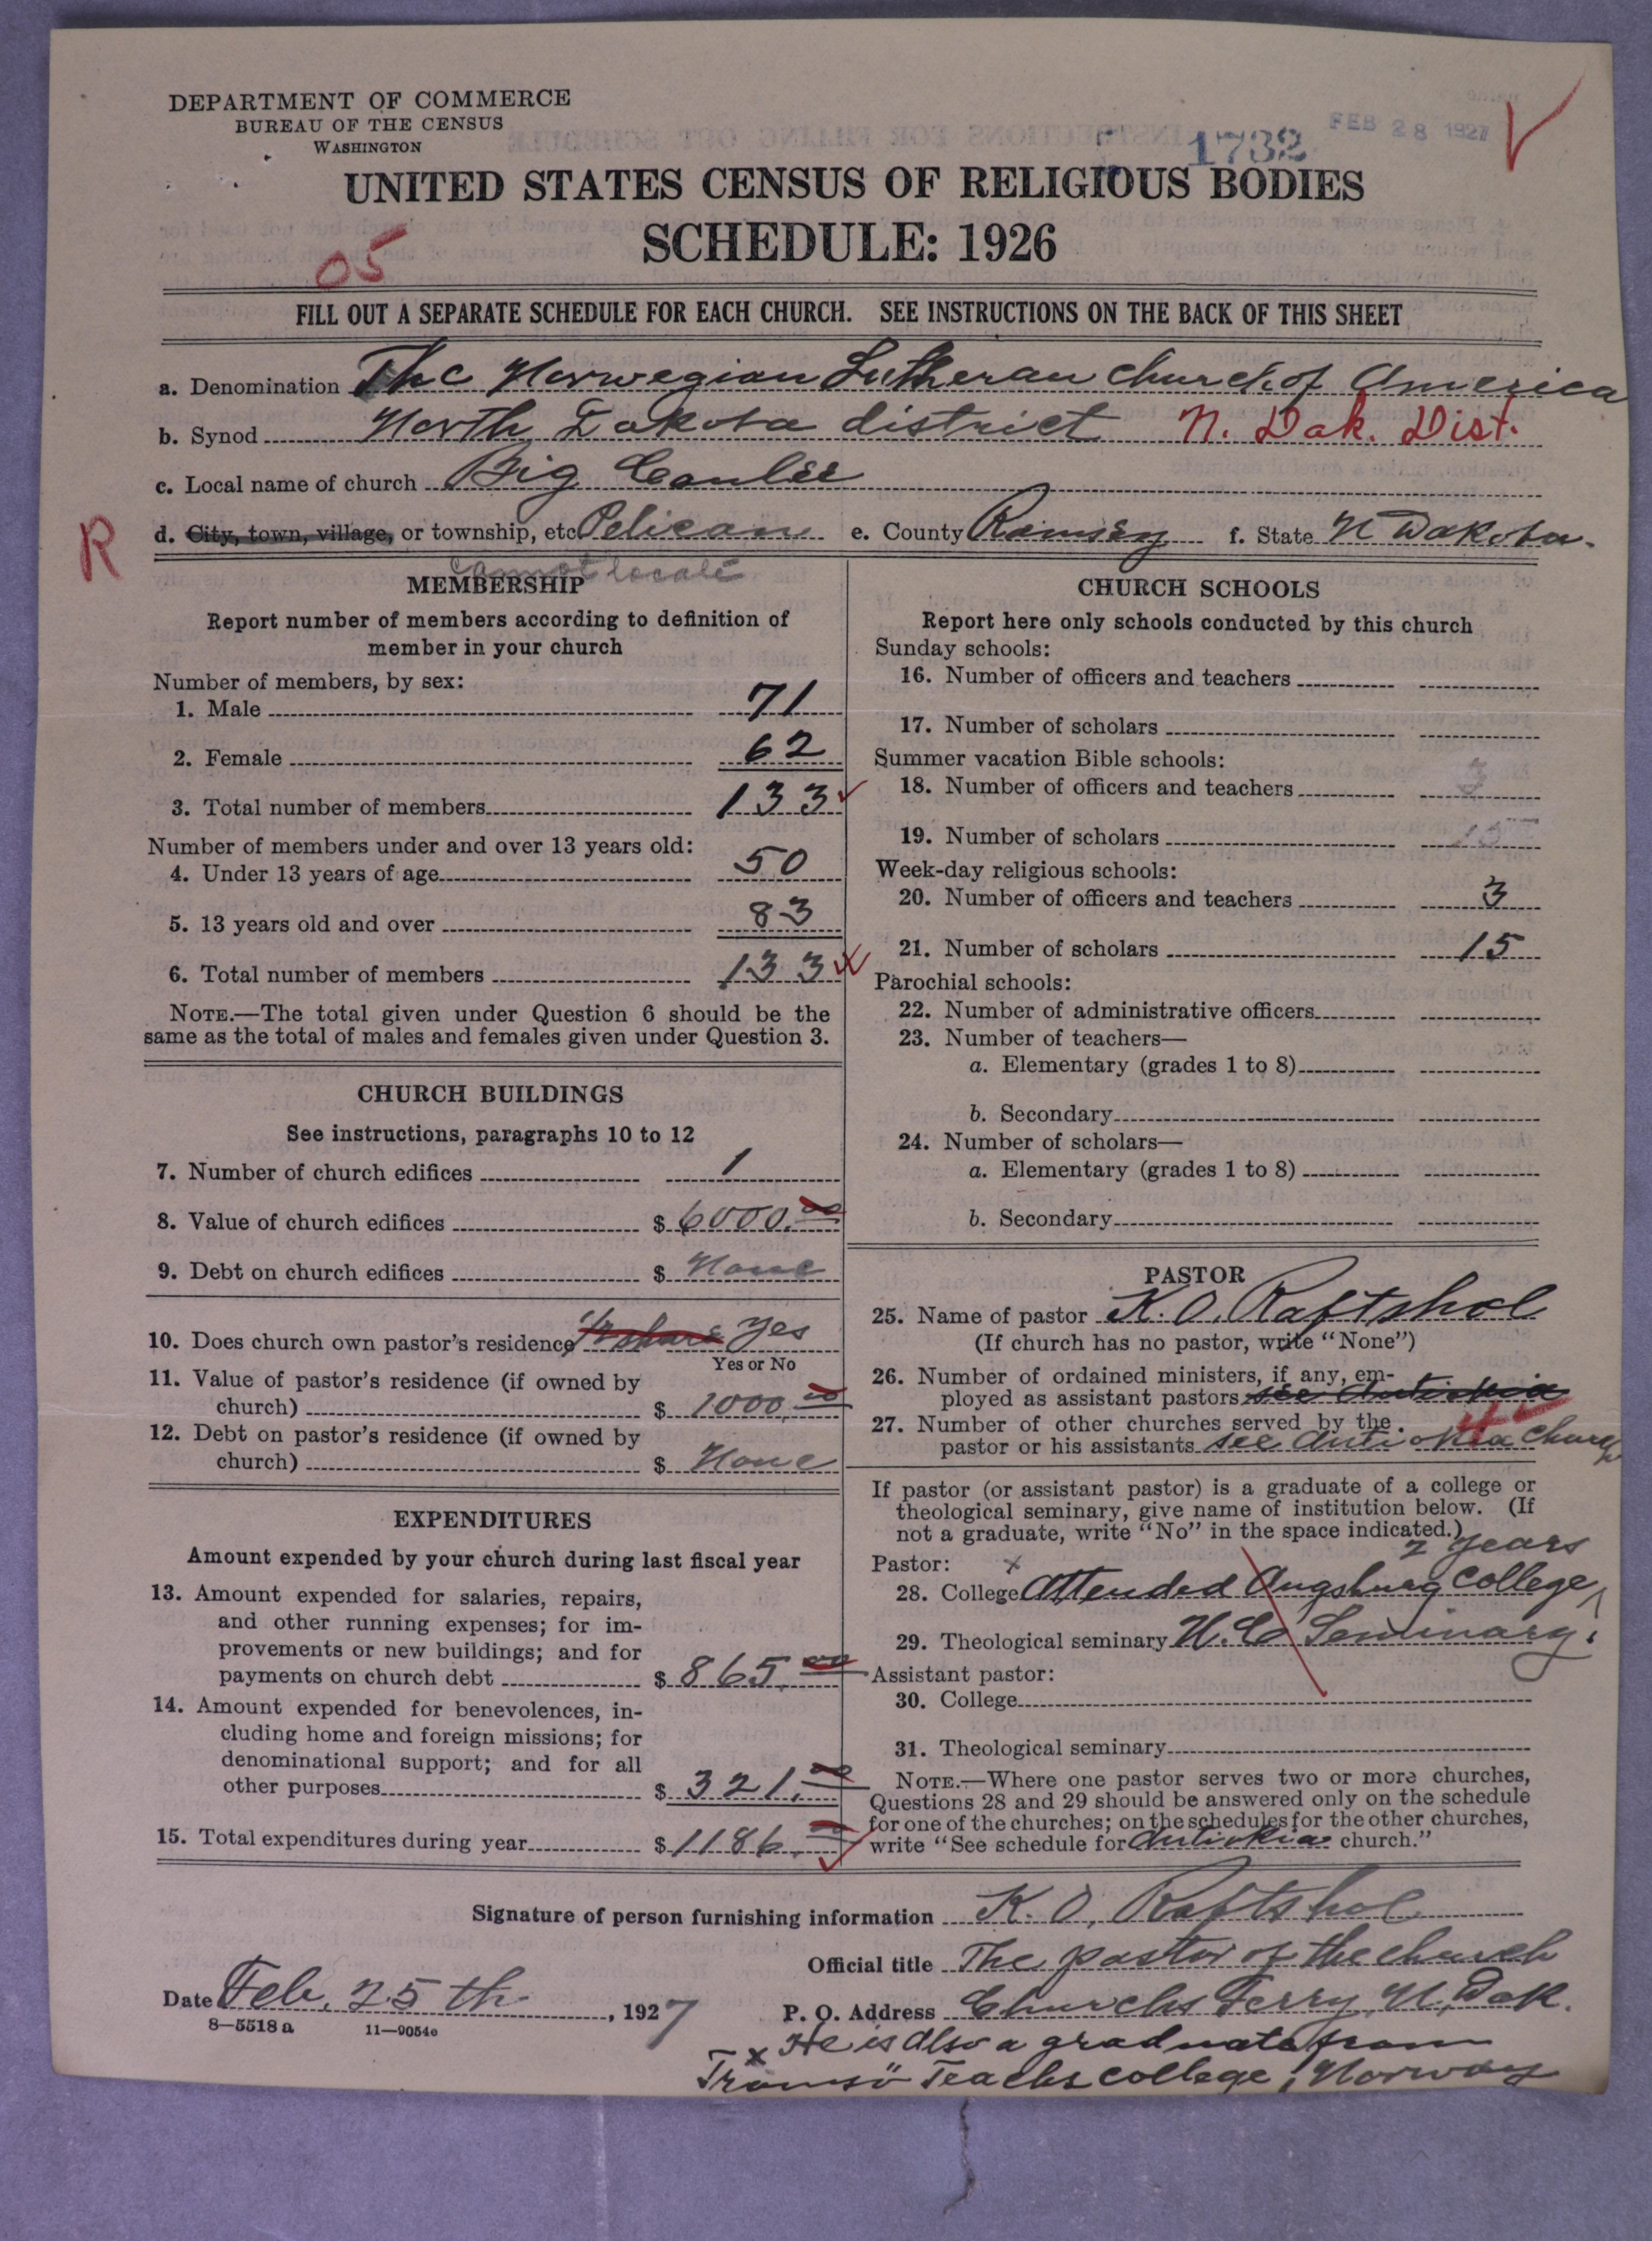 DEPARTMENT OF COMMERCE
BUREAU OF THE CENSUS
WASHINGTON
FEB 28 1927
1732
UNITED STATES CENSUS OF RELIGIOUS BODIES
SCHEDULE: 1926
05
FILL OUT A SEPARATE SCHEDULE FOR EACH CHURCH. SEE INSTRUCTIONS ON THE BACK OF THIS SHEET
a. Denomination The Norwegian Lutheran church of America
b. Synod North Dakota district N. Dak. Dist.
c. Local name of church Big Coulee
R
d. City, town, village, or township, etc. Pelican e. County Ramsey f. State N Dakota.
cannot locate
MEMBERSHIP
Report number of members according to definition of
member in your church
Number of members, by sex:
1. Male 71
2. Female 62
3. Total number of members 133
Number of members under and over 13 years old:
4. Under 13 years of age 50
5. 13 years old and over 83
6. Total number of members 133
NOTE.—The total given under Question 6 should be the
same as the total of males and females given under Question 3.
CHURCH BUILDINGS
See instructions, paragraphs 10 to 12
7. Number of church edifices 1
8. Value of church edifices $ 6000.00
9. Debt on church edifices $ None
10. Does church own pastor's residence yes
Yes or No
11. Value of pastor's residence (if owned by
church) $ 1000.00
12. Debt on pastor's residence (if owned by
church) $ None
EXPENDITURES
Amount expended by your church during last fiscal year
13. Amount expended for salaries, repairs,
and other running expenses; for im-
provements or new buildings; and for
payments on church debt $ 865.00
14. Amount expended for benevolences, in-
cluding home and foreign missions; for
denominational support; and for all
other purposes $ 321.00
15. Total expenditures during year $ 1186.00
CHURCH SCHOOLS
Report here only schools conducted by this church
Sunday schools:
16. Number of officers and teachers
17. Number of scholars
Summer vacation Bible schools:
18. Number of officers and teachers 3
19. Number of scholars 15
Week-day religious schools:
20. Number of officers and teachers 3
21. Number of scholars 15
Parochial schools:
22. Number of administrative officers
23. Number of teachers—
a. Elementary (grades 1 to 8)
b. Secondary
24. Number of scholars—
a. Elementary (grades 1 to 8)
b. Secondary
PASTOR
25. Name of pastor K. O. Raftshol
(If church has no pastor, write "None")
26. Number of ordained ministers, if any, em-
ployed as assistant pastors see Antiokia
27. Number of other churches served by the
pastor or his assistants see Antiokia Church
4
If pastor (or assistant pastor) is a graduate of a college or
theological seminary, give name of institution below. (If
not a graduate, write "No" in the space indicated.)
2 years
Pastor: x
28. College Attended Augsburg College,
29. Theological seminary U.C. Seminary.
Assistant pastor:
30. College
31. Theological seminary
NOTE.—Where one pastor serves two or more churches,
Questions 28 and 29 should be answered only on the schedule
for one of the churches; on the schedules for the other churches,
write "See schedule for Antiokia church."
Signature of person furnishing information K. O. Raftshol
Official title The pastor of the church
Date Feb. 25 th, 1927
P. O. Address Churchs Ferry, N. Dak.
8—5518 a 11—9054e
x He is also a graduate from
Tromsö Teachs college, Norway